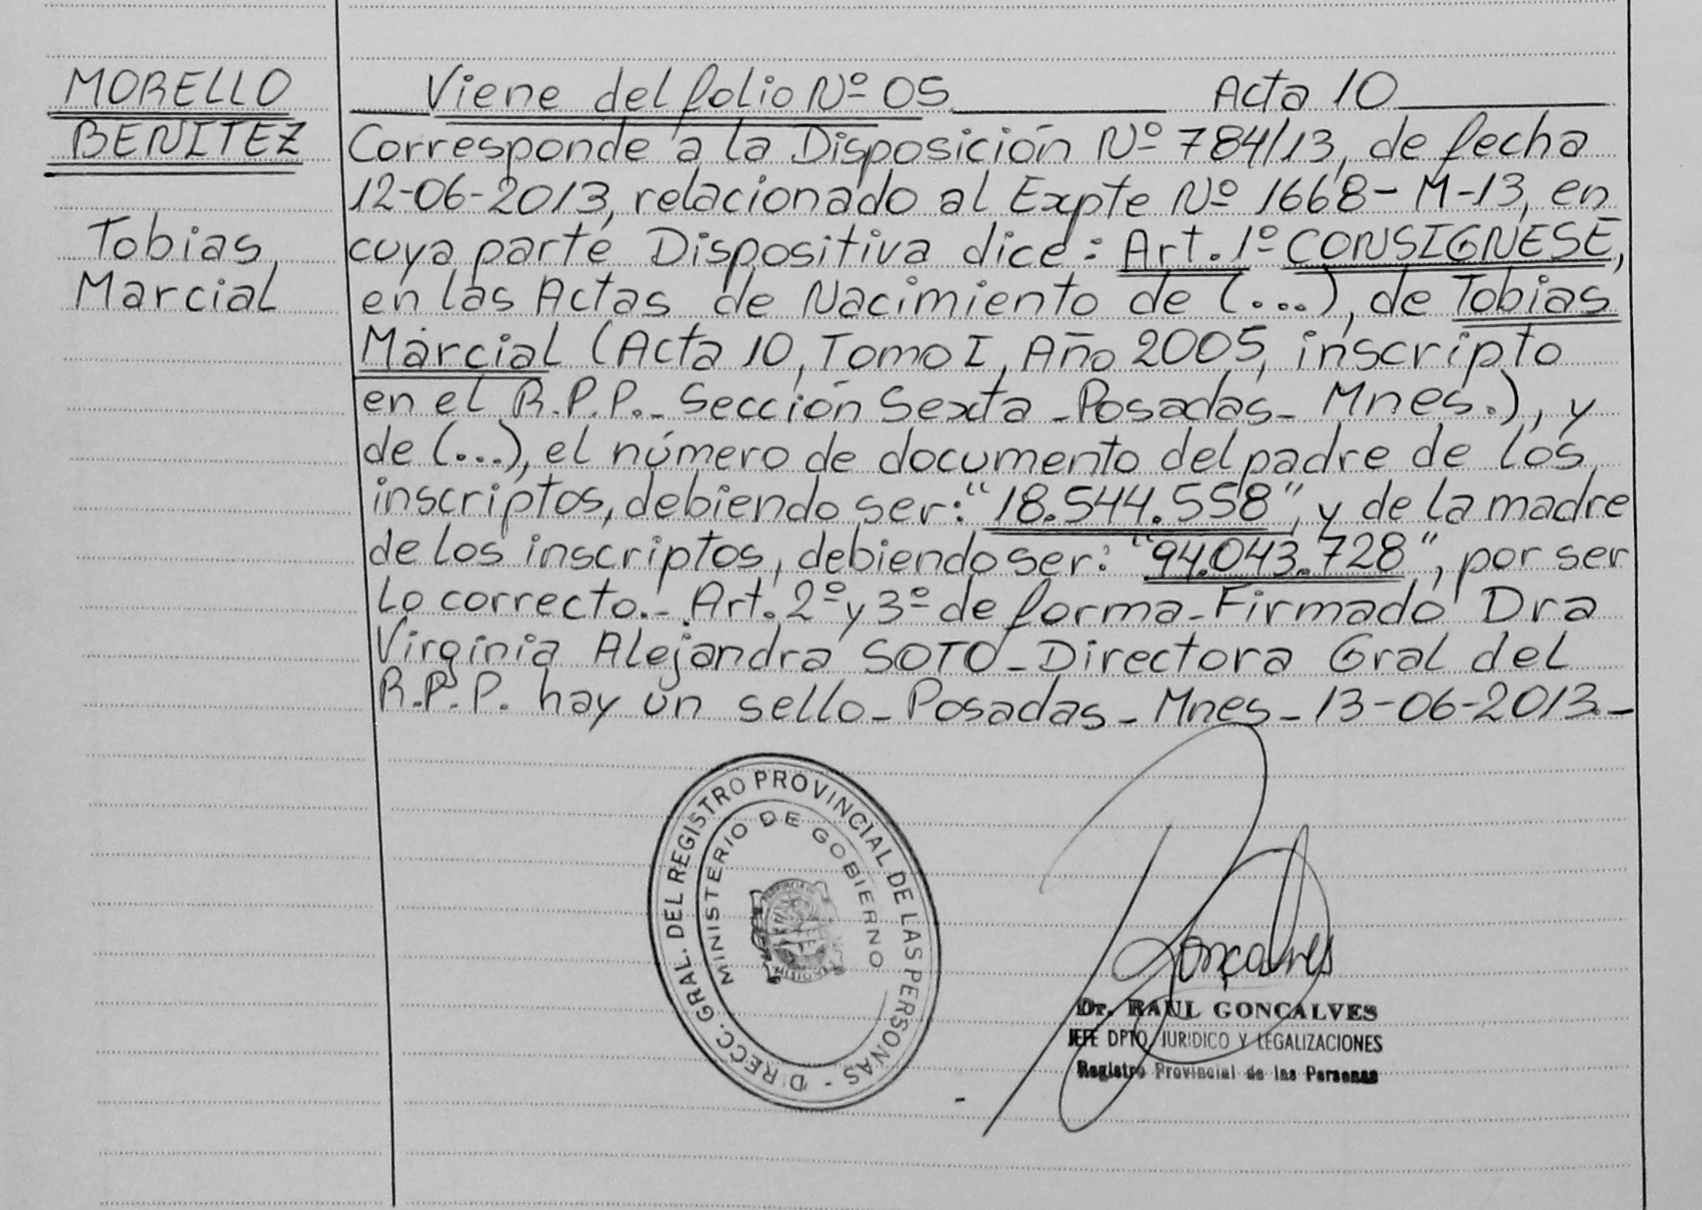 MORELLO
BENITEZ
Tobias
Marcial
Viene del folio Nº 05 Acta 10
Corresponde a la Disposición Nº 784/13, de fecha
12-06-2013, relacionado al Expte Nº 1668-M-13, en
cuya parte Dispositiva dice: Art. 1º CONSIGNESE,
en las Actas de Nacimiento de (...), de Tobias
Marcial (Acta 10, Tomo I, Año 2005, inscripto
en el R.P.P.- Sección Sexta - Posadas - Mnes.), y
de (...), el número de documento del padre de los
inscriptos, debiendo ser: "18.544.558", y de la madre
de los inscriptos, debiendo ser: "94.043.728", por ser
lo correcto.- Art. 2º y 3º de forma - Firmado Dra
Virginia Alejandra SOTO - Directora Gral del
R.P.P. hay un sello - Posadas - Mnes - 13-06-2013.-
DIRECC. GRAL. DEL REGISTRO PROVINCIAL DE LAS PERSONAS -
MINISTERIO DE GOBIERNO
Gonçalves
Dr. RAUL GONCALVES
JEFE DPTO. JURIDICO Y LEGALIZACIONES
Registro Provincial de las Personas